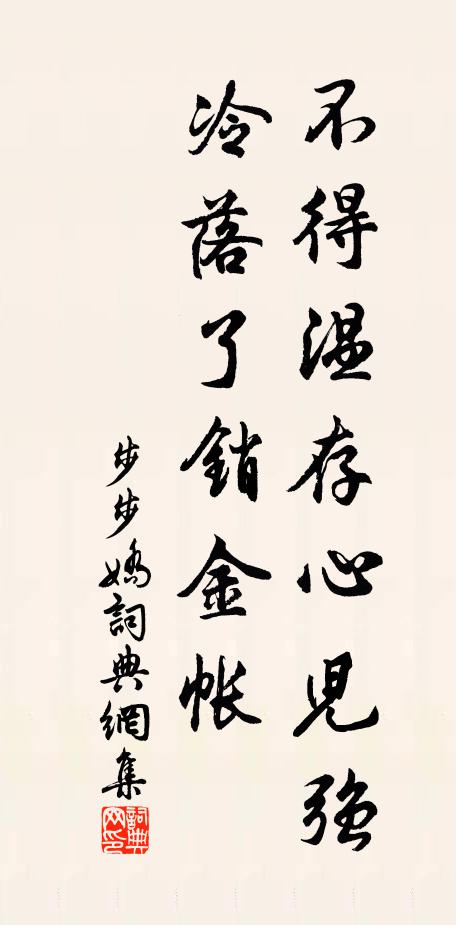 不得温存心児強
冷落了銷金帳
步步嬌詞典網集
詞典網印